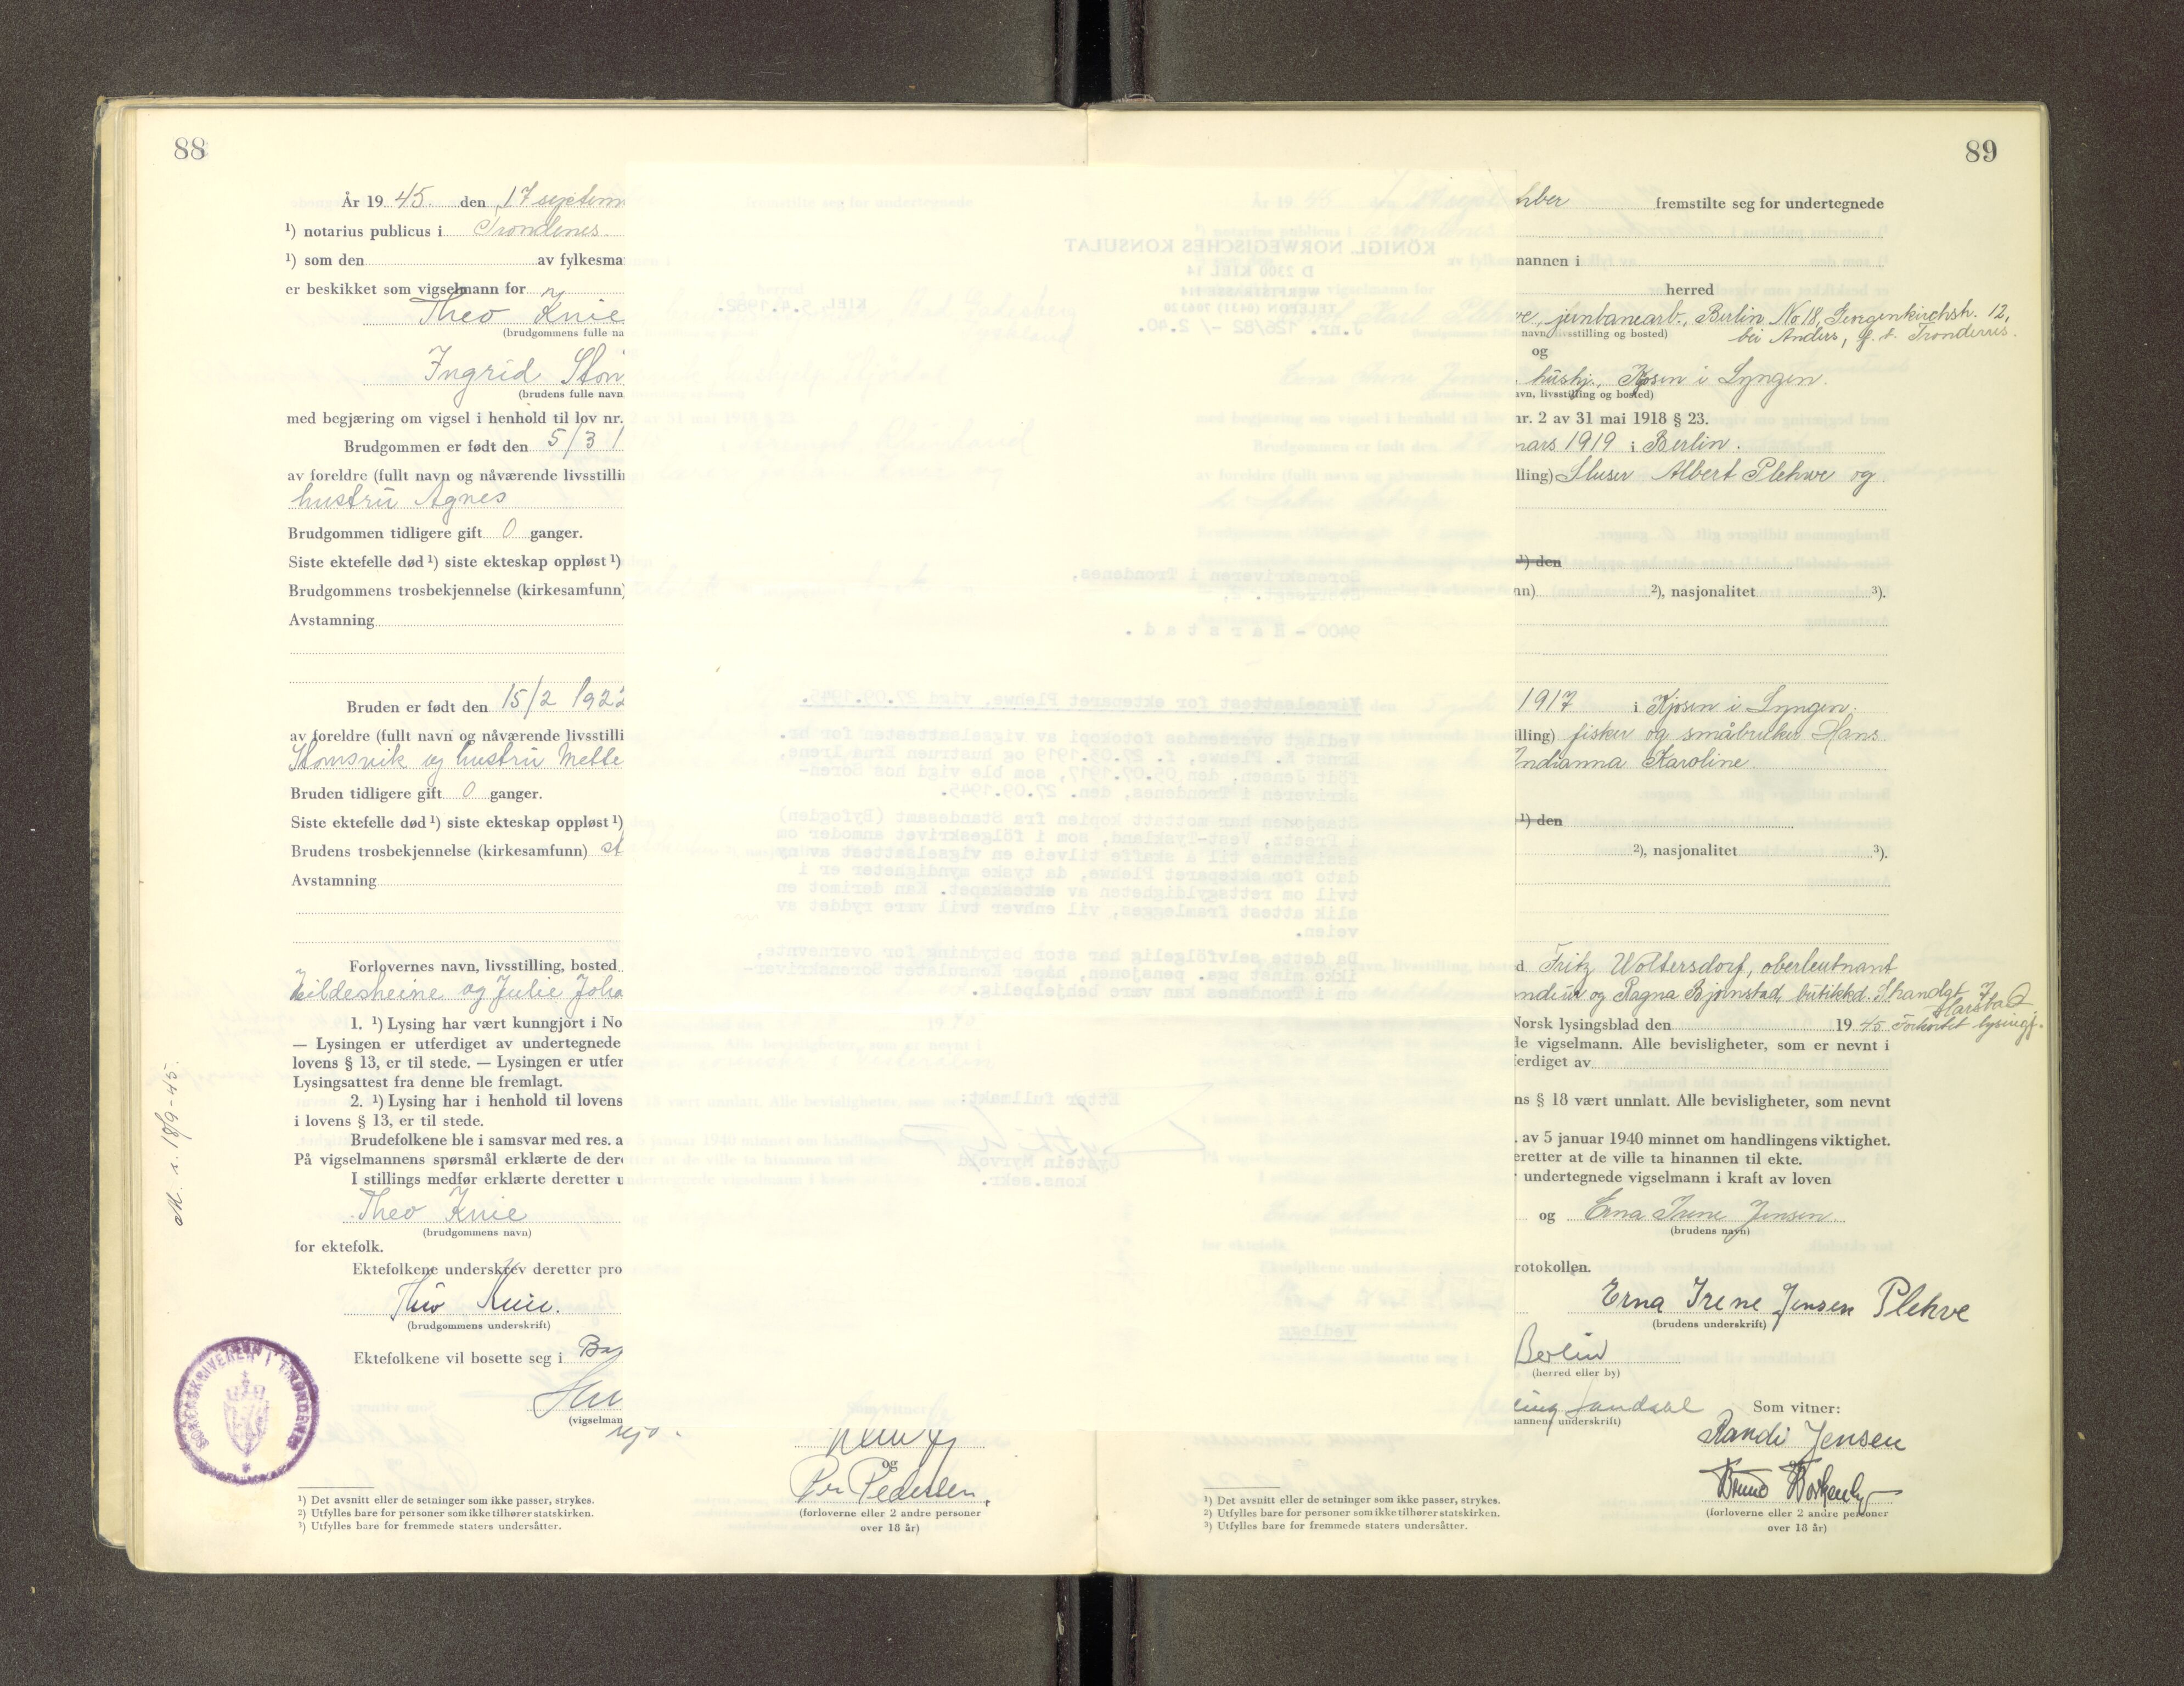 88
År 19 45. den 17 septem
¹) notarius publicus i Trondenes.
¹) som den av fylkesma
er beskikket som vigselmann for
Theo Knie
(brudgommens fulle na
Ingrid Stor
(brudens fulle navn
med begjæring om vigsel i henhold til lov nr.
Brudgommen er født den 5/3 1
av foreldre (fullt navn og nåværende livsstilli
hustru Agnes
Brudgommen tidligere gift 0 ganger.
Siste ektefelle død¹) siste ekteskap oppløst¹)
Brudgommens trosbekjennelse (kirkesamfunn)
Avstamning
Bruden er født den 15/2 1922
av foreldre (fullt navn og nåværende livsstilli
Stomsvik og hustru Mette
Bruden tidligere gift 0 ganger.
Siste ektefelle død¹) siste ekteskap oppløst¹)
Brudens trosbekjennelse (kirkesamfunn) st
Avstamning
Forlovernes navn, livsstilling, bosted
Hildesheine og Julie Joha
1. ¹) Lysing har vært kunngjort i No
— Lysingen er utferdiget av undertegnede
lovens § 13, er til stede. — Lysingen er utfer
Lysingsattest fra denne ble fremlagt.
2. ¹) Lysing har i henhold til lovens
i lovens § 13, er til stede.
Brudefolkene ble i samsvar med res. a
På vigselmannens spørsmål erklærte de der
I stillings medfør erklærte deretter u
Theo Knie
(brudgommens navn)
for ektefolk.
Ektefolkene underskrev deretter pro
Theo Knie.
(brudgommens underskrift)
Ektefolkene vil bosette seg i
(vigselman
og
Per Pedersen.
(forloverne eller 2 andre personer
over 18 år)
¹) Det avsnitt eller de setninger som ikke passer, strykes.
²) Utfylles bare for personer som ikke tilhører statskirken.
³) Utfylles bare for fremmede staters undersåtter.
M. s. 18/9-45.
SORENSKRIVEREN I TRONDENES
KÖNIGL. NORWEGISCHES KONSULAT
D 2300 KIEL 14
WERFTSTRASSE 114
KIEL, 5.4.1982.
J.nr. 126/82 -/- 2.40.
Sorenskriveren i Trondenes,
9400 - H a r s t a d .
Vigselsattest for ekteparet Plehwe, vigd 27.09.1945.
Vedlagt oversendes fotokopi av vigselsattesten for hr.
Ernst K. Plehwe, f. 27.03.1919 og hustruen Erna Irene,
født Jensen, den 05.07.1917, som ble vigd hos Soren-
skriveren i Trondenes, den. 27.09.1945.
Stasjonen har mottatt kopien fra Standesamt (Byfogden)
i Preetz, Vest-Tyskland, som i følgeskrivet anmoder om
assistanse til å skaffe tilveie en vigselsattest av ny
dato for ekteparet Plehwe, da tyske myndigheter er i
tvil om rettsgyldigheten av ekteskapet. Kan derimot en
slik attest framlegges, vil enhver tvil være ryddet av
veien.
Da dette selvfølgelig har stor betydning for overnevnte,
ikke minst pga. pensjonen, håper Konsulatet Sorenskriver-
en i Trondenes kan være behjelpelig.
Etter fullmakt:
Øystein Myrvold
kons.sekr.
Vedlegg
89
mber fremstilte seg for undertegnede
mannen i
herred
we, jernbanearb., Berlin No 18, Georgenkirchstr. 12,
bei Anders, f. t. Trondenes.
navn, livsstilling og bosted)
og
hushj., Kjosen i Lyngen.
avn, livsstilling og bosted)
nr. 2 av 31 mai 1918 § 23.
mars 1919 i Berlin.
lling) Sluser Albert Plehwe og
¹) den
nn) ²), nasjonalitet ³).
1917 i Kjosen i Lyngen.
illing) fisker og småbruker Hans
Indianna Karoline
¹) den
²), nasjonalitet ³).
d Fritz Woltersdorf, oberleutnant
og Ragna Bjørnstad, butikkd. Strandgt. 7
Harstad.
Norsk lysingsblad den 19 45 Forkortet lysingsf.
de vigselmann. Alle bevisligheter, som er nevnt i
ferdiget av
ns § 18 vært unnlatt. Alle bevisligheter, som nevnt
. av 5 januar 1940 minnet om handlingens viktighet.
eretter at de ville ta hinannen til ekte.
r undertegnede vigselmann i kraft av loven
og Erna Irene Jensen
(brudens navn)
rotokollen.
Erna Irene Jensen Plehve
(brudens underskrift)
Berlin
(herred eller by)
mannens underskrift)
Som vitner:
Randi Jensen
Bruno
(forloverne eller 2 andre personer
over 18 år)
¹) Det avsnitt eller de setninger som ikke passer, strykes.
²) Utfylles bare for personer som ikke tilhører statskirken.
³) Utfylles bare for fremmede staters undersåtter.